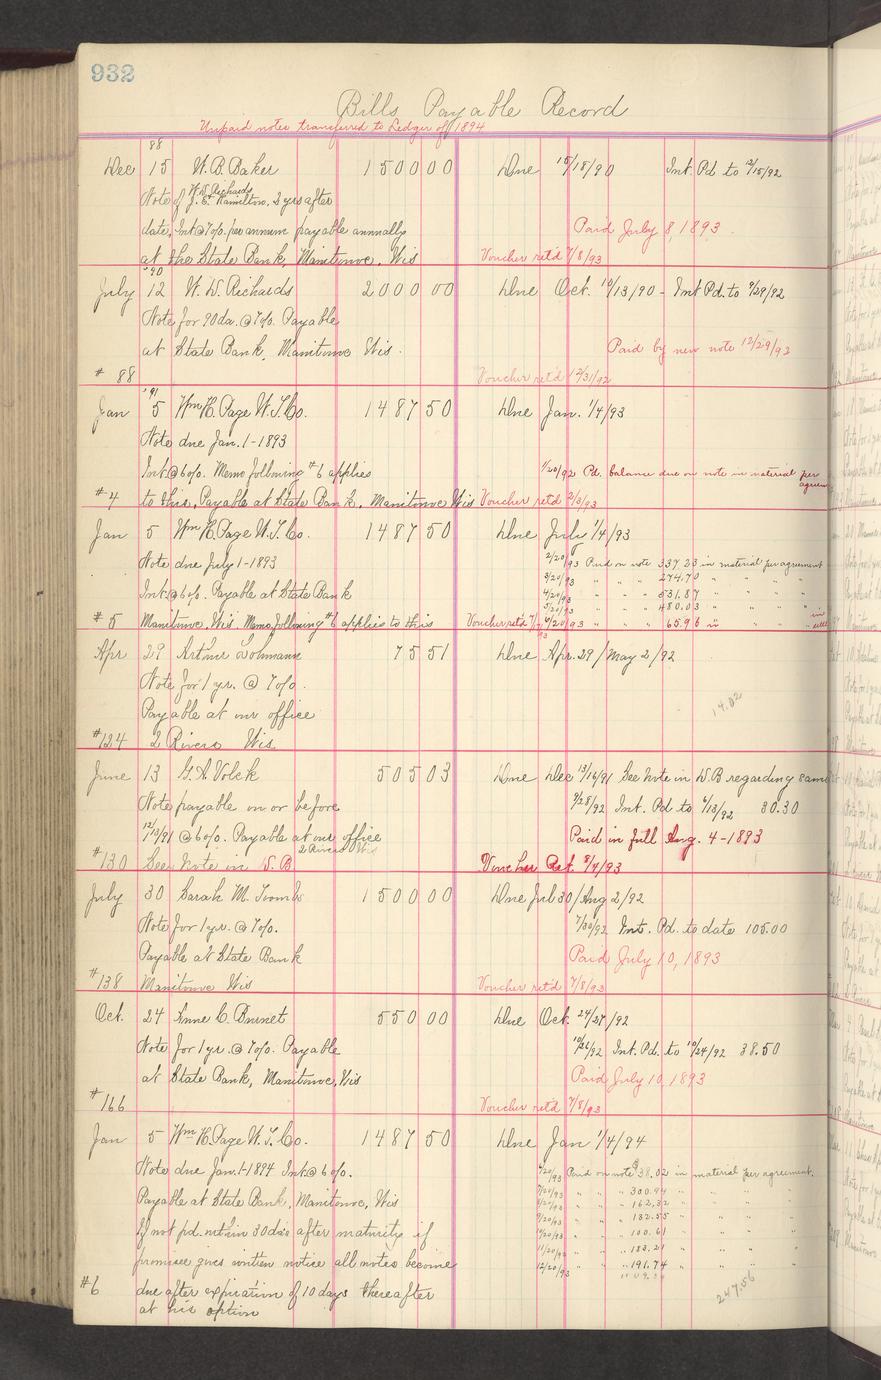 932
Bills Payable Record
Unpaid notes transferred to Ledger of 1894
88
Dec 15 W. B. Baker 1500 00 Due 15/18/90 Int. Pd to 12/15/92
Note of W. D. Richards
J. E. Hamilton, 2 yrs after
date, Int @ 7% per annum payable annually Paid July 8, 1893
at the State Bank, Manitowoc, Wis Voucher ret'd 7/8/93
'90
July 12 W. D. Richards 2000 00 Due Oct. 10/13/90 - Int Pd. to 9/29/92
Note for 90 da. @ 7%. Payable
at State Bank, Manitowoc Wis. Paid by new note 12/29/93
# 88 Voucher ret'd 12/31/92
'91
Jan 5 Wm H. Page W. T. Co. 1487 50 Due Jan. 1/4/93
Note due Jan. 1-1893
Int. @ 6%. Memo following #6 applies 1/20/92 Pd. balance due on note in material per agreem
#4 to this, Payable at State Bank, Manitowoc Wis Voucher ret'd 2/3/93
Jan 5 Wm H. Page W. T. Co. 1487 50 Due July 1/4/93
Note due July 1-1893 2/20/93 Paid on note 337.23 in material per agreement
3/20/93 " " " 274.70 " " " "
Int. @ 6%. Payable at State Bank 4/20/93 " " " 531.87 " " " "
5/20/93 " " " 480.03 " " " "
#5 Manitowoc, Wis Memo following #6 applies to this Voucher ret'd 7/7/93 6/20/93 " " " 65.96 in " " " in
Apr 29 Arthur Lohmann 75 51 Due Apr. 29/May 2/92
Note for 1 yr. @ 7%.
Payable at our office 14.02
#124 2 Rivers Wis
June 13 G. A. Volck 505 03 Due Dec 13/16/91 See Note in D. B regarding same
Note payable on or before 9/28/92 Int. Pd to 6/13/92 30.30
12/13/91 @ 6%. Payable at our office Paid in full Aug. 4-1893
2 Rivers Wis
#130 See Note in D. B Voucher Ret. 8/4/93
July 30 Sarah M. Toombs 1500 00 Due Jul 30/Aug 2/92
Note for 1 yr. @ 7%. 7/30/92 Int. Pd. to date 105.00
Payable at State Bank Paid July 10, 1893
#138 Manitowoc Wis Voucher ret'd 7/8/93
Oct. 24 Anne C. Burnet 550 00 Due Oct. 24/27/92
Note for 1 yr. @ 7%. Payable 10/26/92 Int. Pd. to 10/24/92 38.50
at State Bank, Manitowoc, Wis Paid July 10, 1893
#166 Voucher ret'd 7/8/93
Jan 5 Wm H. Page W. T. Co. 1487 50 Due Jan 1/4/94
Note due Jan. 1-1894 Int. @ 6%. 6/20/93 Paid on note $38.02 in material per agreement.
7/20/93 " " " 300.94 " " "
Payable at State Bank, Manitowoc, Wis 8/20/93 " " " 162.32 " " "
9/20/93 " " " 132.55 " " "
If not pd. within 30 da's after maturity if 10/20/93 " " " 100.61 " " "
11/20/93 " " " 183.21 " " "
promisee gives written notice all notes become 12/20/93 " " " 191.74 " " "
#6 due after expiration of 10 days thereafter 247.56
at his option